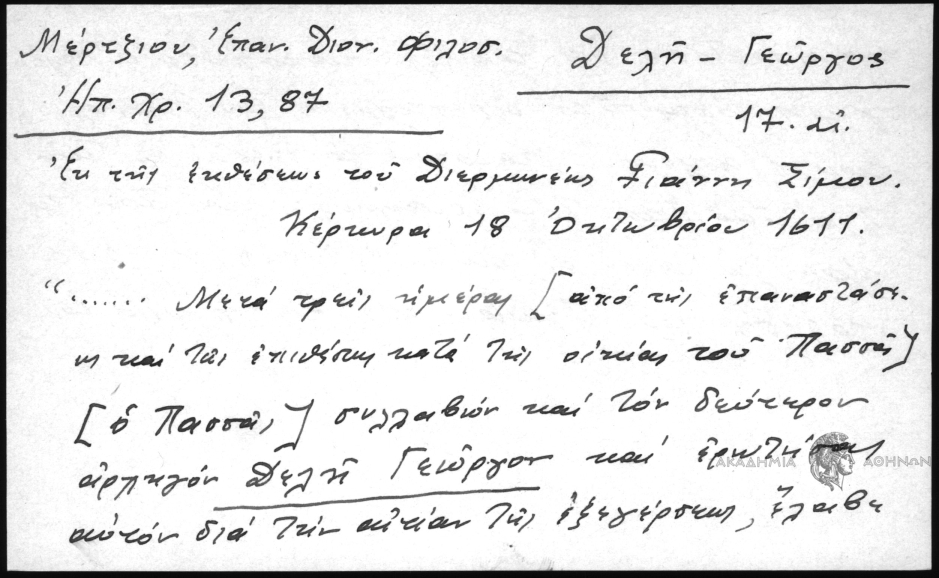 Μέρτζιου, Ἐπαν. Διον. Φιλοσ.
Ἠπ. Χρ. 13, 87
Δελῆ - Γεῶργος
17. αἰ.
Ἐκ τῆς ἐκθέσεως τοῦ Διερμηνέως Γιάννη Σίμου.
Κέρκυρα 18 Ὀκτωβρίου 1611.
"....... Μετά τρεῖς ἡμέρας [ἀπό τῆς ἐπαναστάσε-
ως καί τῆς ἐπιθέσεως κατά τῆς οἰκίας τοῦ Πασσᾶ]
[ὁ Πασσᾶς] συλλαβών καί τόν δεύτερον
ἀρχηγόν Δελῆ Γεώργον καί ἐρωτήσας
αὐτόν διά τήν αἰτίαν τῆς ἐξεγέρσεως, ἔλαβε
ΑΚΑΔΗΜΙΑ ΑΘΗΝΩΝ